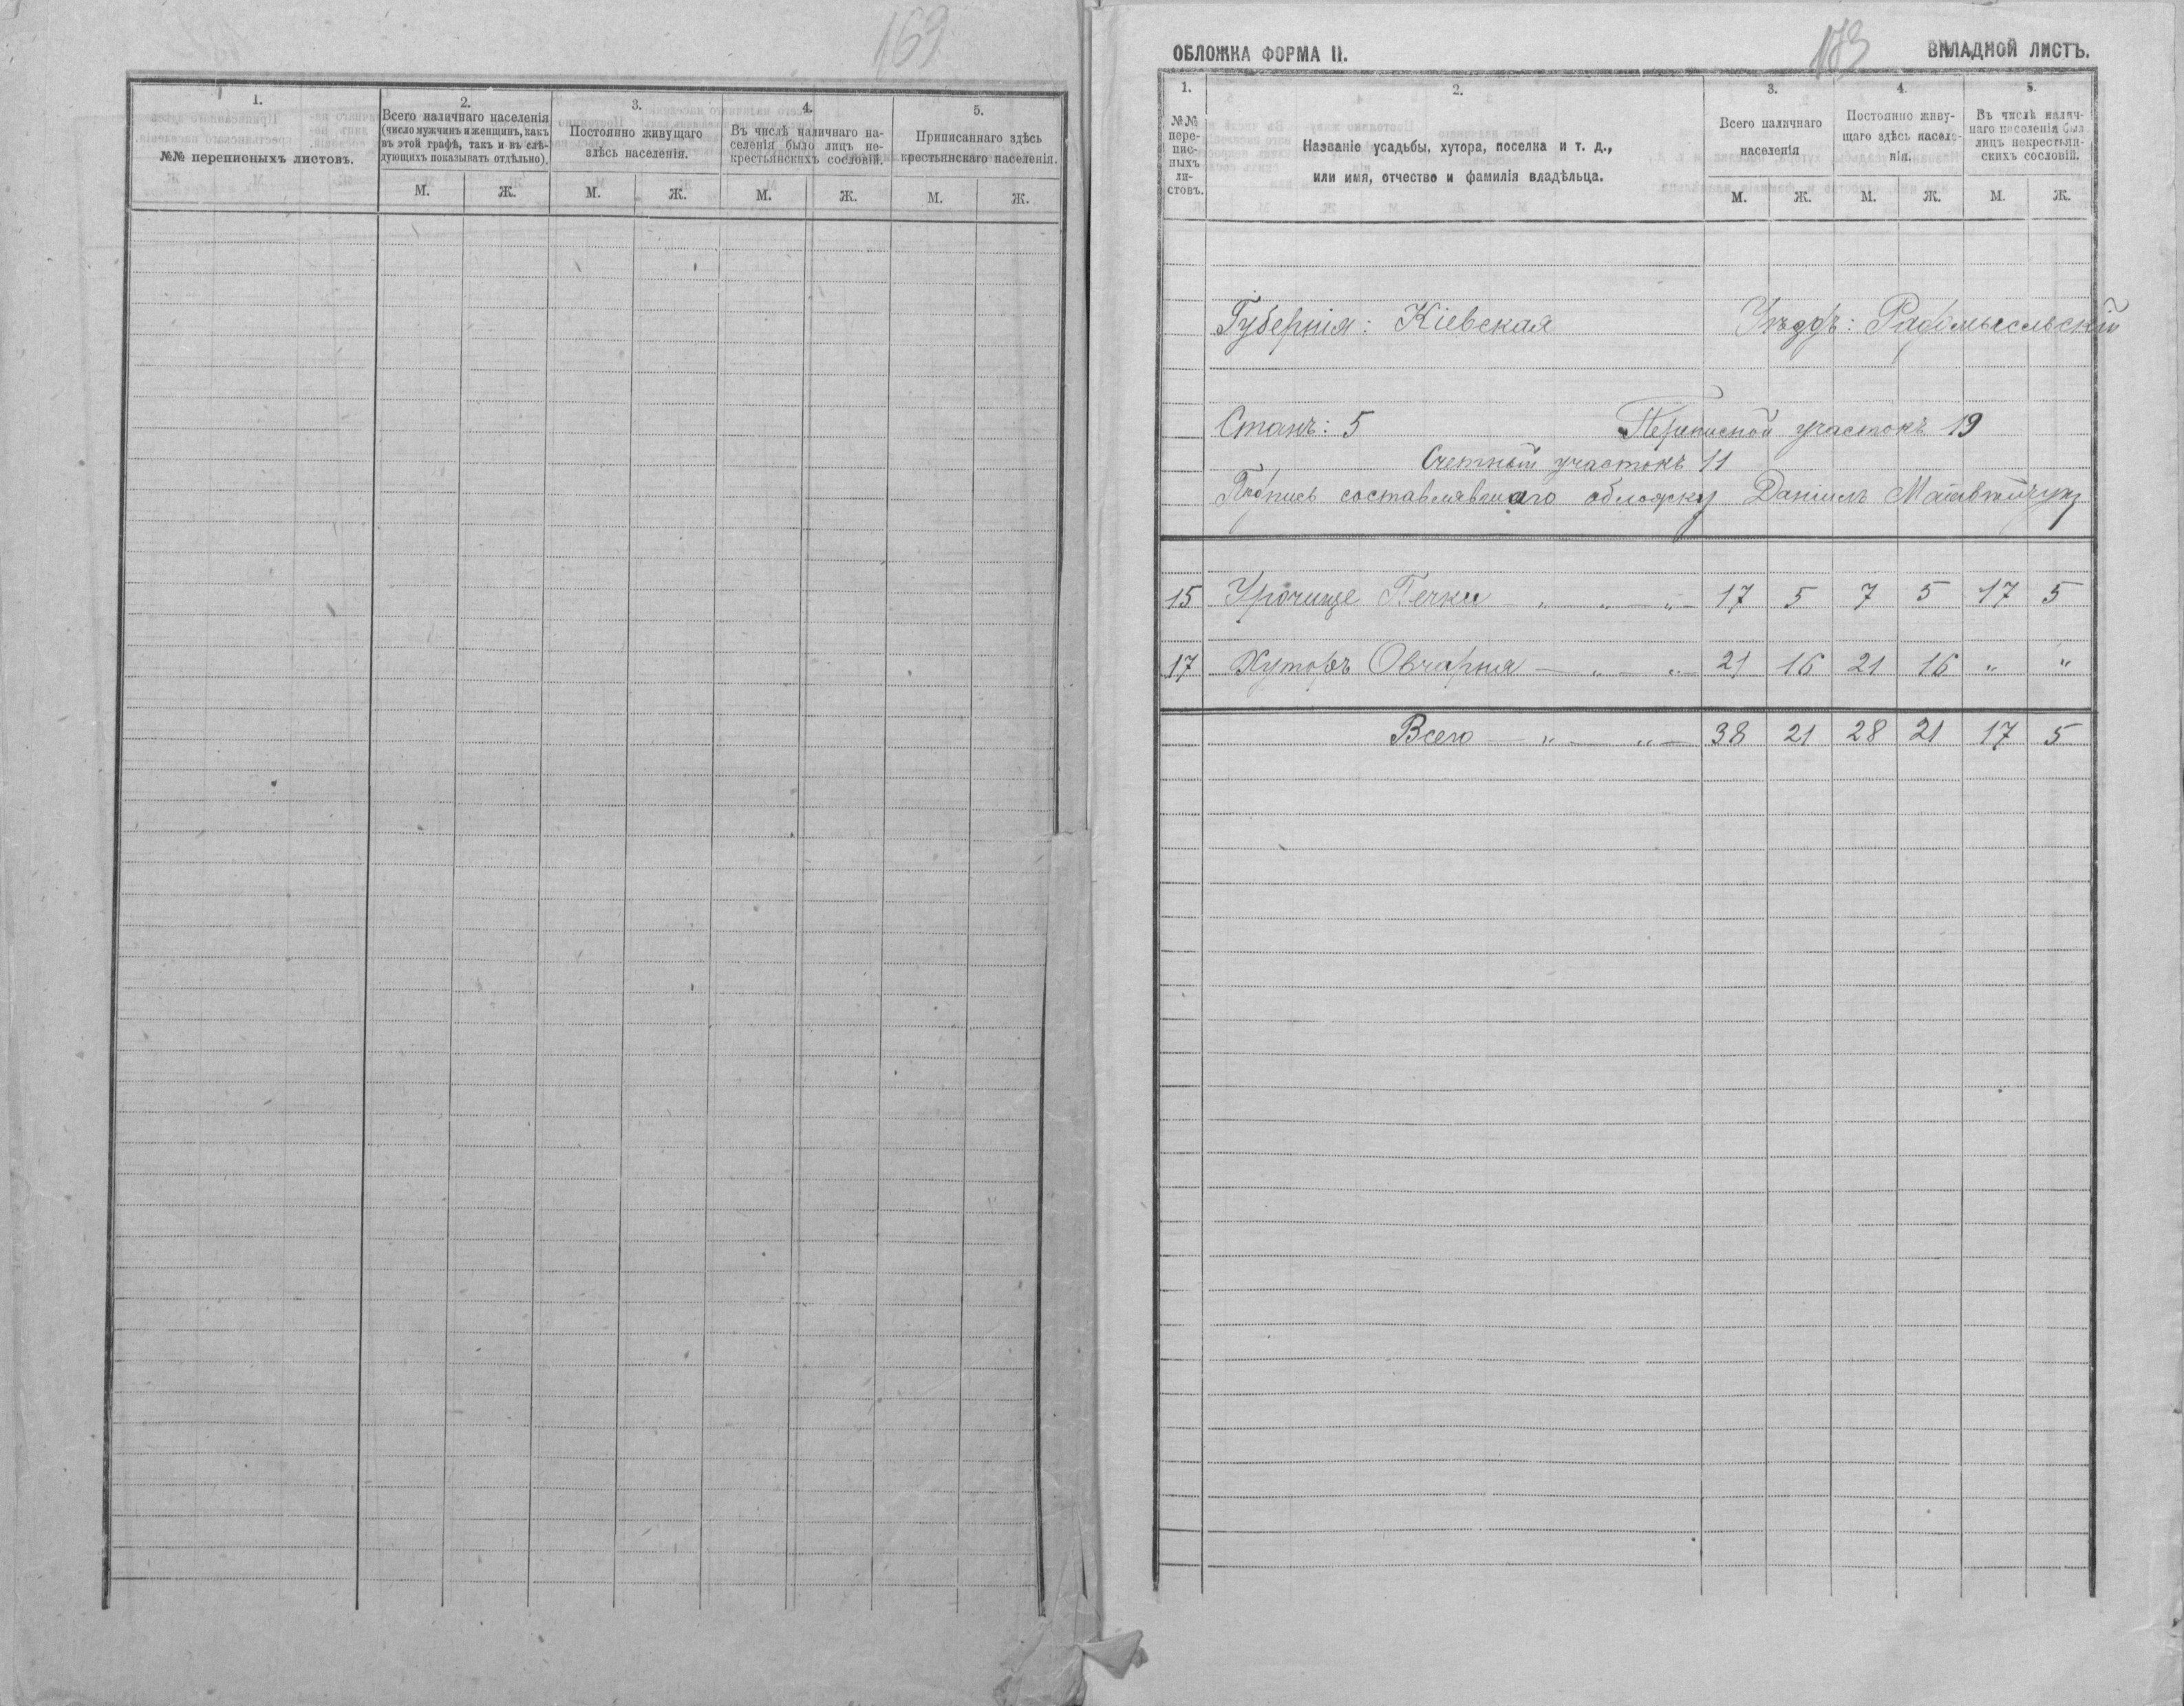 169
1. 2. 3. 4. 5.
№№ переписныхъ листовъ.
Всего наличнаго населенія
(число мужчинъ и женщинъ, какъ
въ этой графѣ, такъ и въ слѣ-
дующихъ показывать отдѣльно).
Постоянно живущаго
здѣсь населенія.
Въ числѣ наличнаго на-
селенія было лицъ не-
крестьянскихъ сословій.
Приписаннаго здѣсь
крестьянскаго населенія.
М. Ж. М. Ж. М. Ж. М. Ж.
ОБЛОЖКА ФОРМА II.
173
ВКЛАДНОЙ ЛИСТЪ.
1. 2. 3. 4. 5.
№№
пере-
пис-
ныхъ
ли-
стовъ.
Названіе усадьбы, хутора, поселка и т. д.,
или имя, отчество и фамилія владѣльца.
Всего наличнаго
населенія
Постоянно живу-
щаго здѣсь населе-
нія.
Въ числѣ налич-
наго населенія был
лицъ некрестьян-
скихъ сословій.
М. Ж. М. Ж. М. Ж.
Губернія: Кіевская Уѣздъ: Радомысльскій
Станъ: 5 Переписной участокъ 19
Счетный участокъ 11
Подпись составлявшаго обложку Даніилъ
15 Урочище Печки — „ — „ — „ — 17 5 7 5 17 5
17 Хуторъ Овчарня — „ — „ — 21 16 21 16 „ „
Всего — „ — „ — 38 21 28 21 17 5